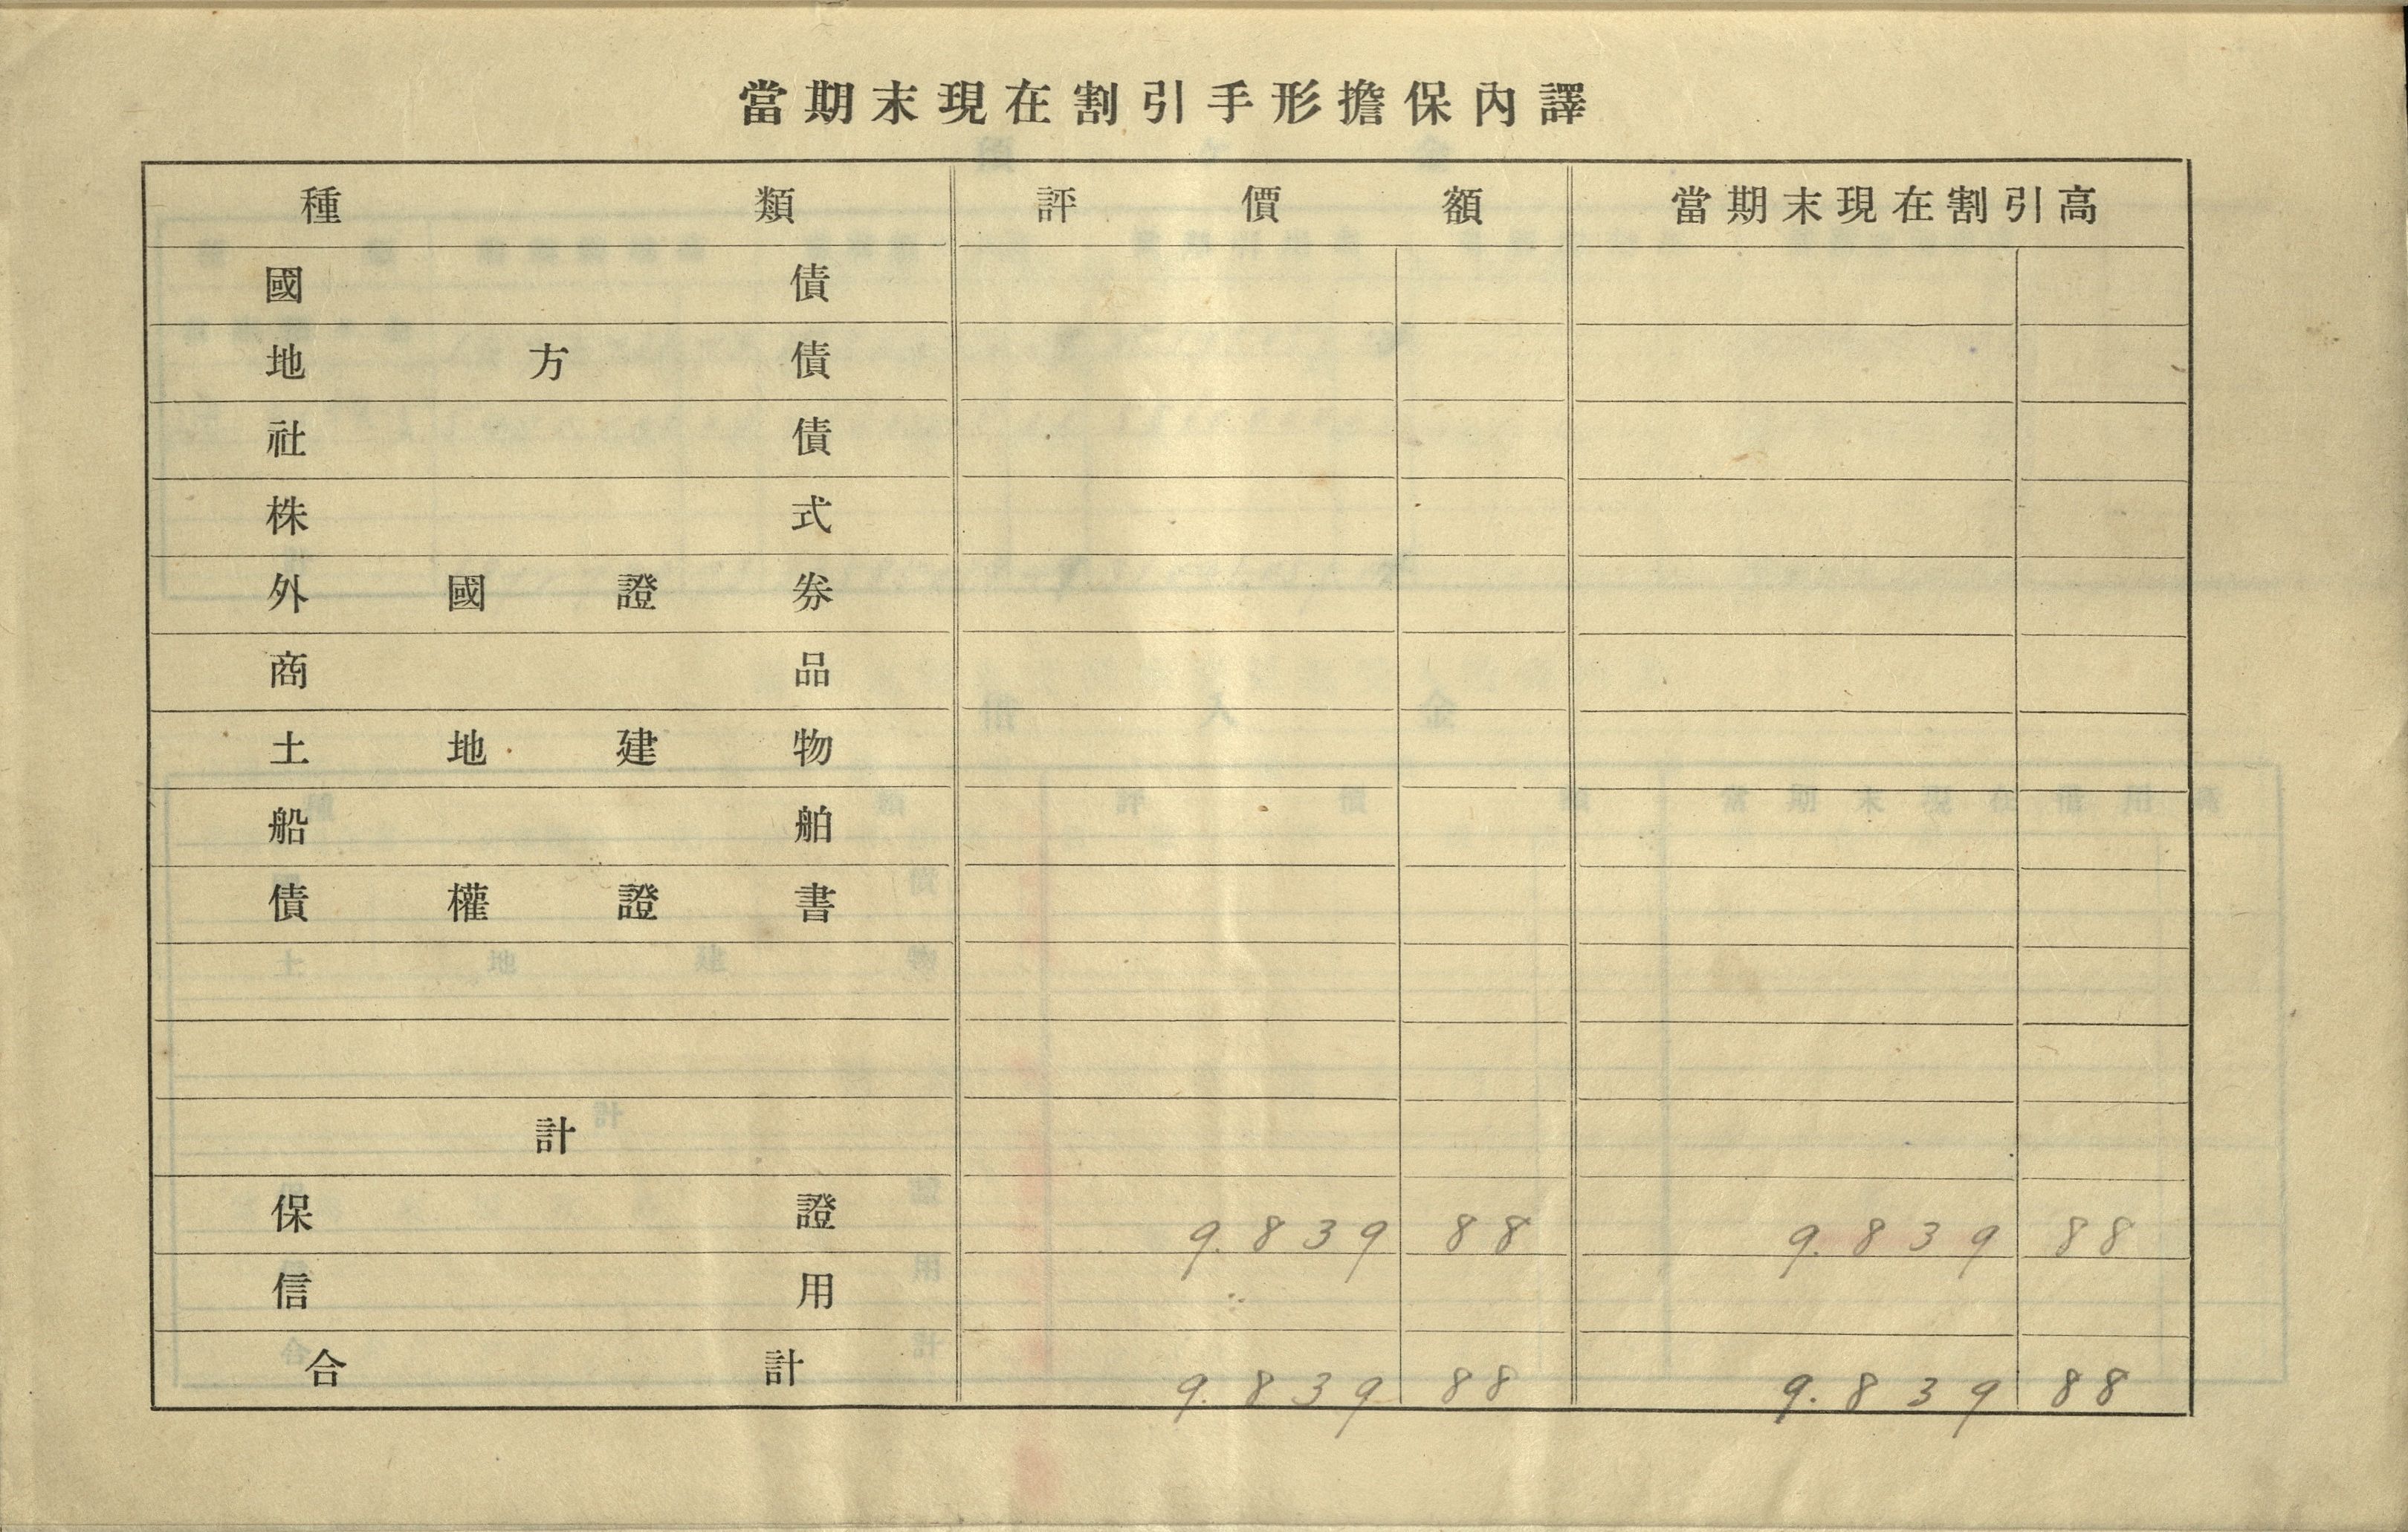 當期末現在割引手形擔保內譯
種類 評價額 當期末現在割引高
國債
地方債
社債
株式
外國證券
商品
土地建物
船舶
債權證書
計
保證 9.839 88 9.839 88
信用
合計 9.839 88 9.839 88